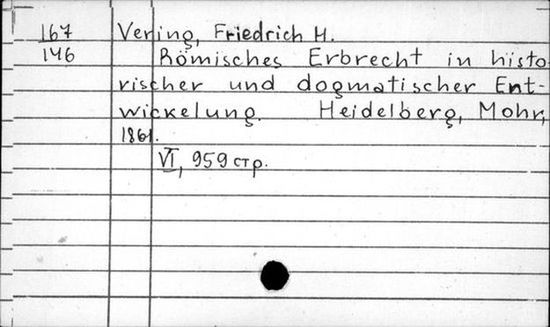 167
146
Vering, Friedrich H.
Römisches Erbrecht in histo-
rischer und dogmatischer Ent-
wickelung. Heidelberg, Mohr,
1861.
VI, 959 стр.